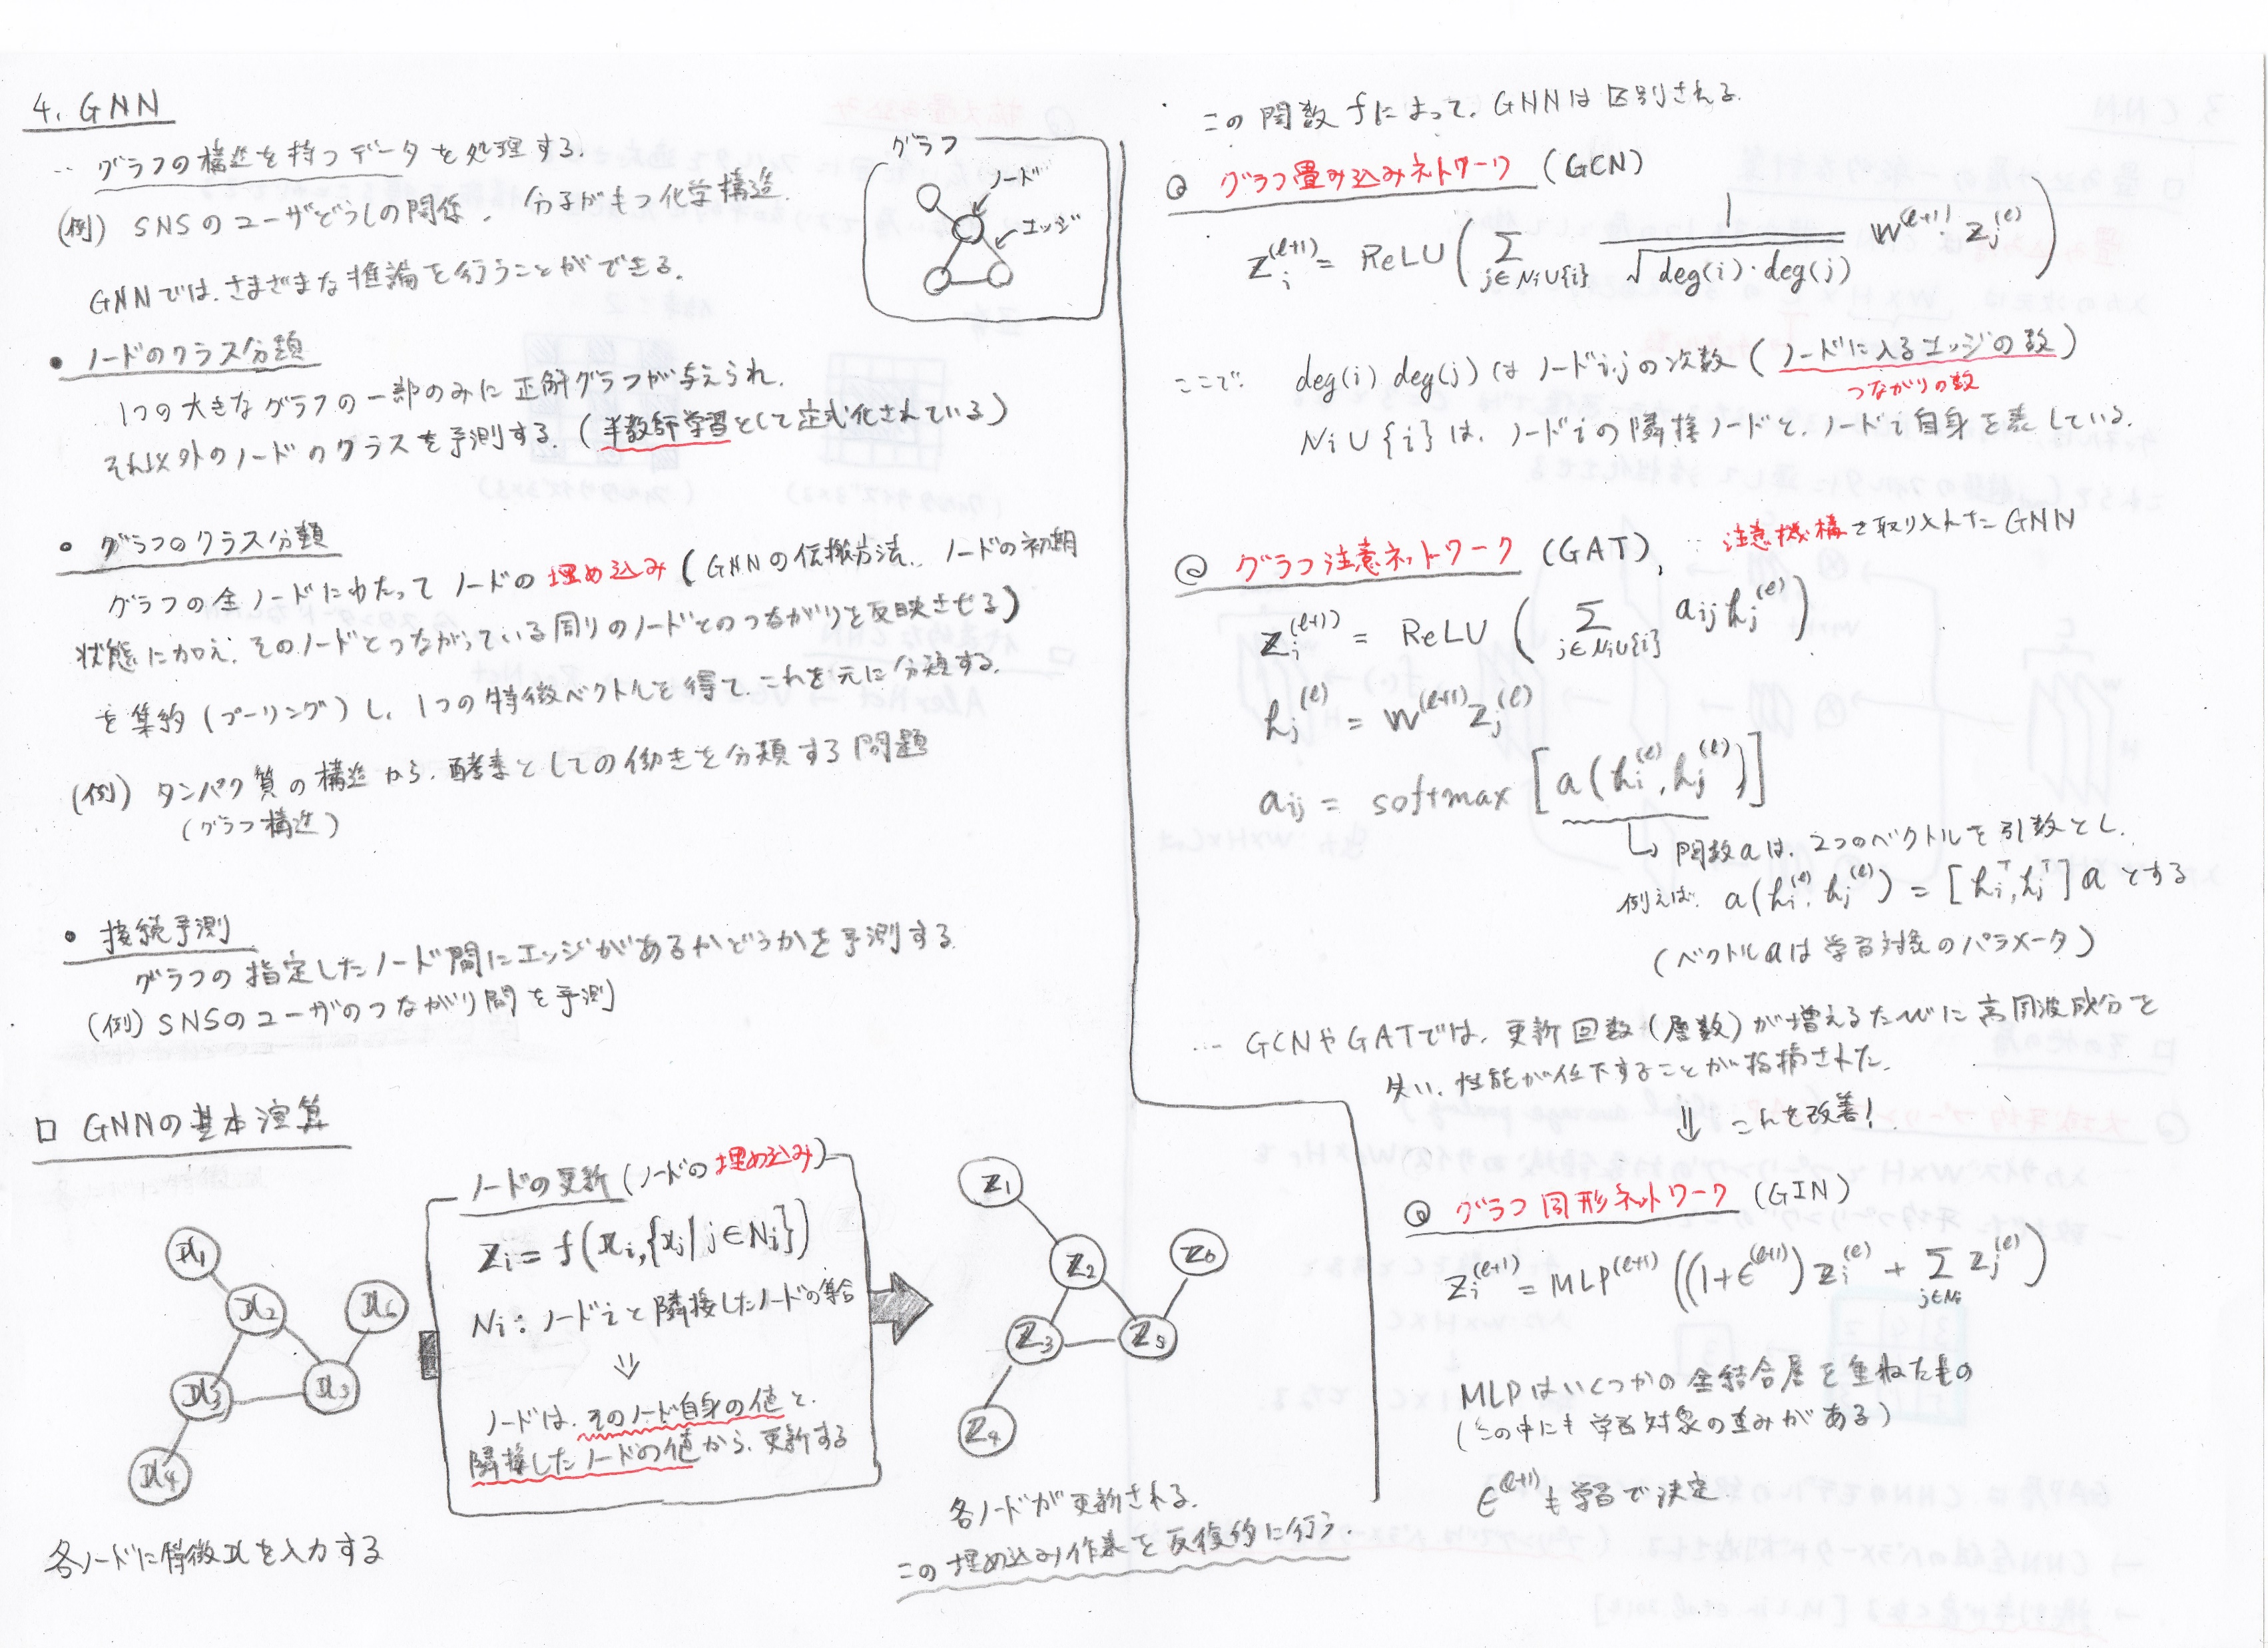 4. GNN
… グラフの構造を持つデータを処理する.
グラフ
ノード
エッジ
(例) SNSのユーザどうしの関係, 分子がもつ化学構造.
GNNでは, さまざまな推論を行うことができる.
• ノードのクラス分類
1つの大きなグラフの一部のみに正解グラフが与えられ,
それ以外のノードのクラスを予測する. (半教師学習として定式化されている)
• グラフのクラス分類
グラフの全ノードにわたってノードの埋め込み (GNNの伝搬方法, ノードの初期
状態に加え, そのノードとつながっている周りのノードとのつながりを反映させる)
を集約 (プーリング) し, 1つの特徴ベクトルを得て, これを元に分類する.
(例) タンパク質の構造から, 酵素としての働きを分類する問題
(グラフ構造)
• 接続予測
グラフの指定したノード間にエッジがあるかどうかを予測する.
(例) SNSのユーザのつながり間を予測
□ GNNの基本演算
x1
x2
x6
x3
x5
x4
各ノードに特徴xを入力する
ノードの更新 (ノードの埋め込み)
zi = f(xi, {xj | j∈Ni})
Ni : ノードiと隣接したノードの集合
⇓
ノードは, そのノード自身の値と,
隣接したノードの値から, 更新する
z1
z2
z6
z3
z5
z4
各ノードが更新される.
この埋め込み作業を反復的に行う.
この関数fによって, GNNは区別される.
◎ グラフ畳み込みネットワーク (GCN)
zi^(ℓ+1) = ReLU( Σ_{j∈Ni∪{i}} 1/√(deg(i)・deg(j)) W^(ℓ+1) zj^(ℓ) )
ここで, deg(i) deg(j) はノードi,jの次数 (ノードに入るエッジの数)
つながりの数
Ni∪{i} は, ノードiの隣接ノードと, ノードi自身を表している.
◎ グラフ注意ネットワーク (GAT), … 注意機構を取り入れたGNN
zi^(ℓ+1) = ReLU( Σ_{j∈Ni∪{i}} aij hj^(ℓ) )
hj^(ℓ) = W^(ℓ+1) zj^(ℓ)
aij = softmax [ a(hi^(ℓ), hj^(ℓ)) ]
↳ 関数aは, 2つのベクトルを引数とし,
例えば, a(hi^(ℓ), hj^(ℓ)) = [hi^T, hj^T] a とする
(ベクトルaは学習対象のパラメータ)
… GCNやGATでは, 更新回数(層数)が増えるたびに高周波成分を
失い, 性能が低下することが指摘された.
⇓ これを改善!
◎ グラフ同形ネットワーク (GIN)
zi^(ℓ+1) = MLP^(ℓ+1) ((1+ϵ^(ℓ+1)) zi^(ℓ) + Σ_{j∈Ni} zj^(ℓ))
MLPはいくつかの全結合層を重ねたもの
(この中にも学習対象の重みがある)
ϵ^(ℓ+1) も学習で決定